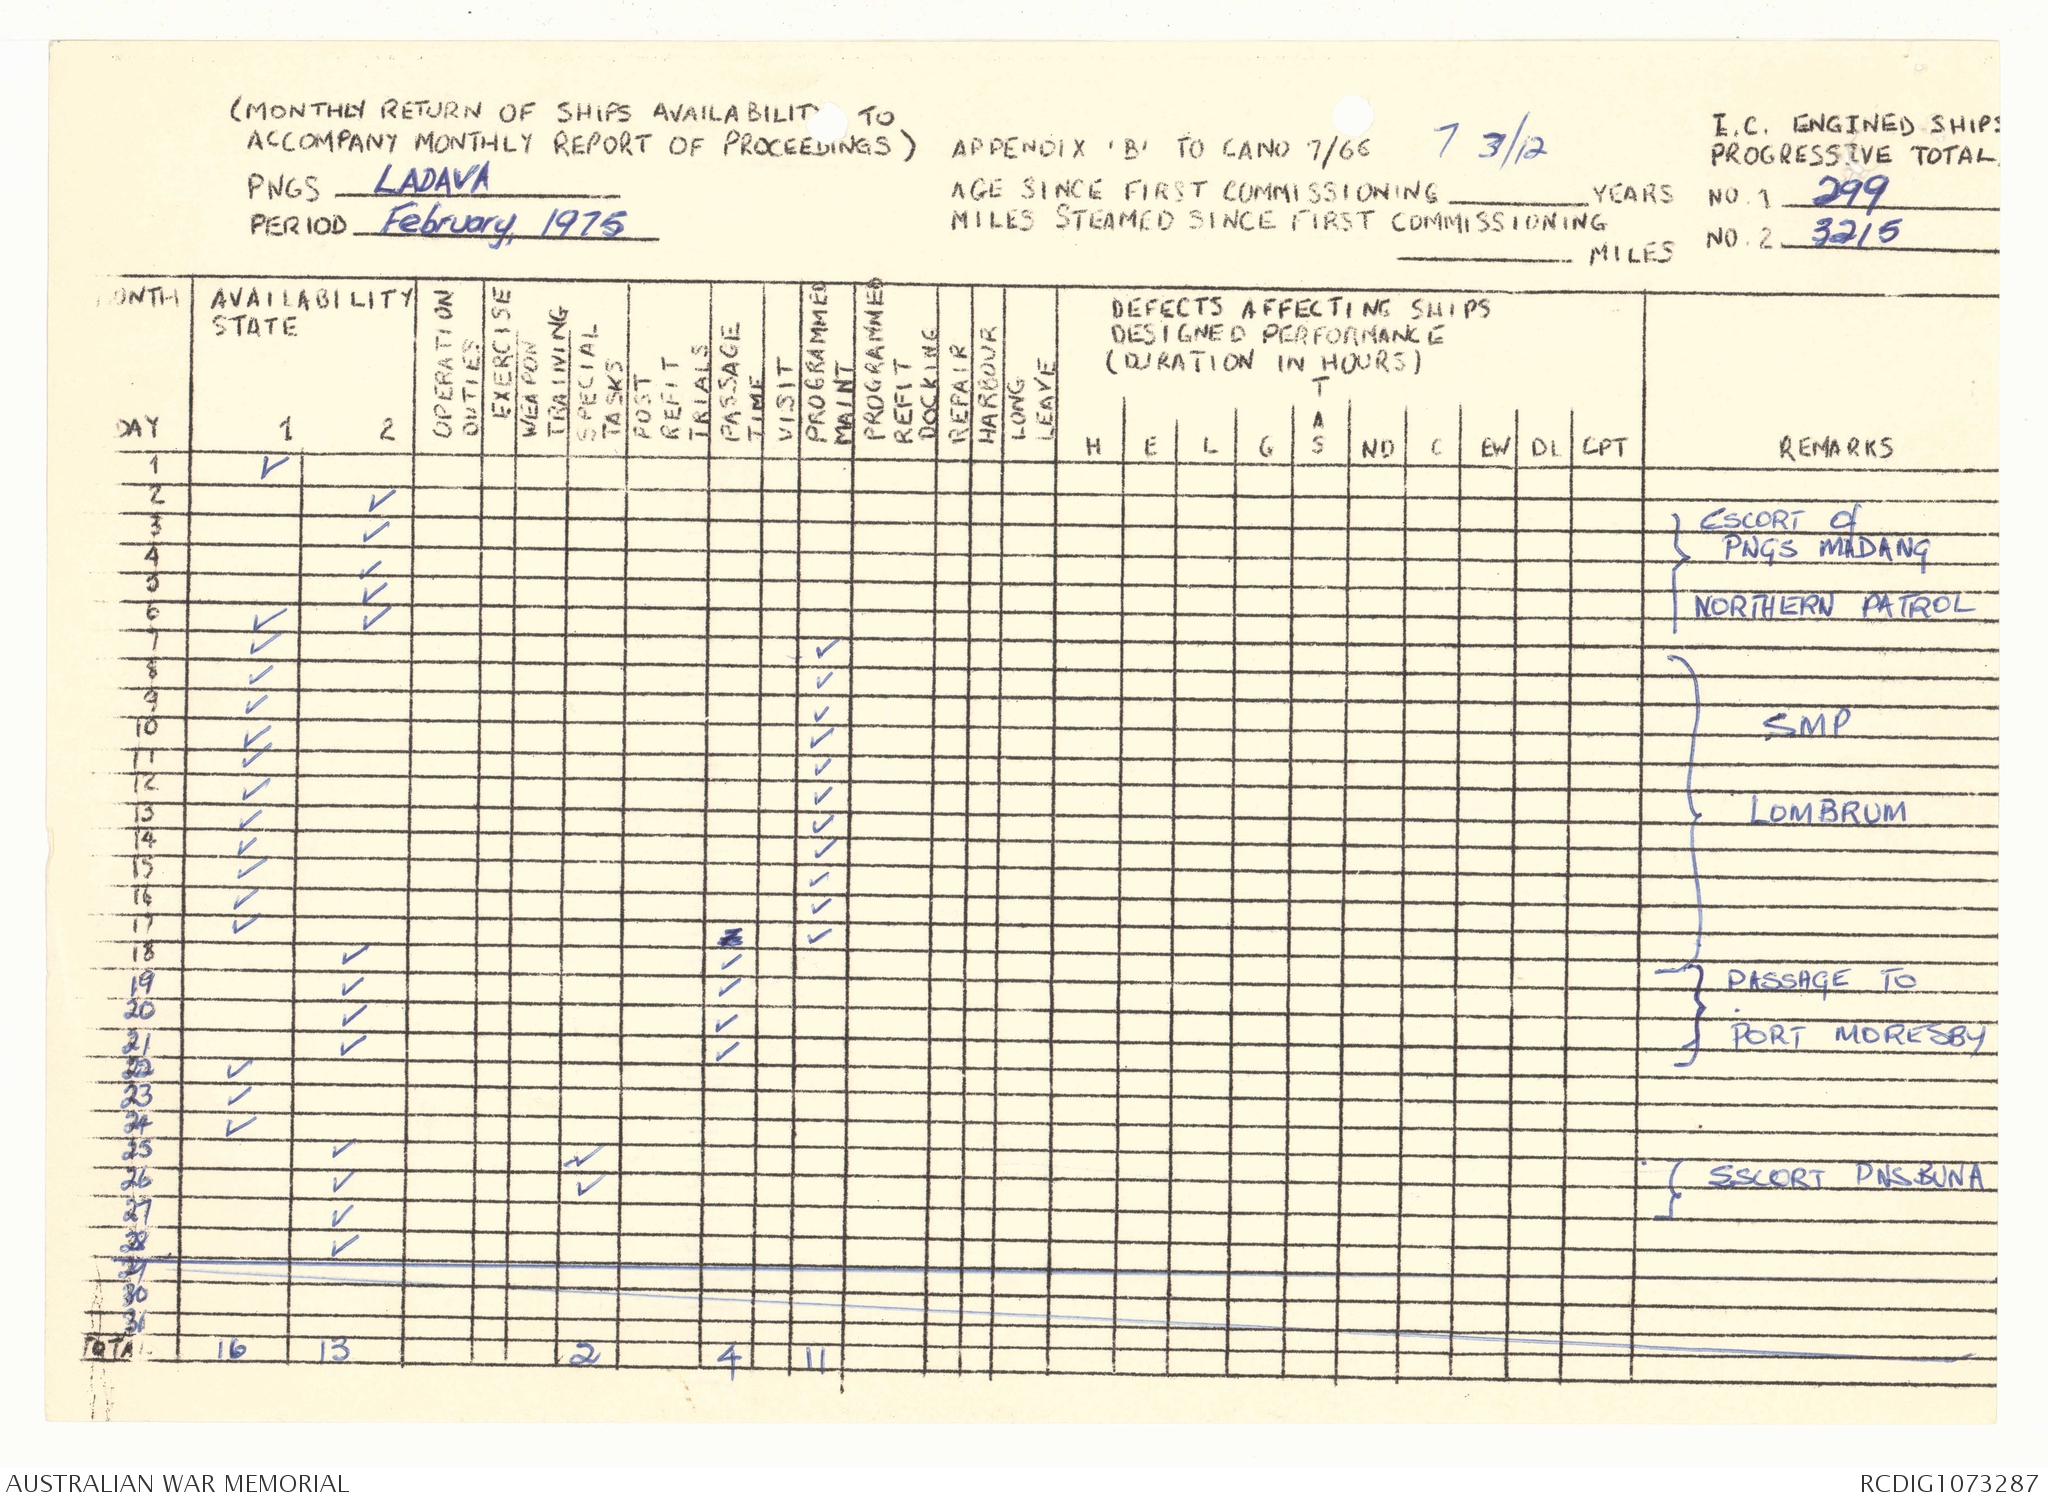 (MONTHLY RETURN OF SHIPS AVAILABILIT TO
ACCOMPANY MONTHLY REPORT OF PROCEEDINGS)
PNGS LADAVA
PERIOD February, 1975
APPENDIX 'B' TO CANO 7/66 7 3/12
AGE SINCE FIRST COMMISSIONING YEARS
MILES STEAMED SINCE FIRST COMMISSIONING
MILES
I.C. ENGINED SHIPS
PROGRESSIVE TOTAL
NO. 1 299
NO. 2 3215
MONTH
DAY
AVAILABILITY
STATE
1 2
OPERATION
DUTIES
EXERCISE
WEAPON
TRAINING
SPECIAL
TASKS
POST
REFIT
TRIALS
PASSAGE
TIME
VISIT
PROGRAMMED
MAINT
PROGRAMMED
REFIT
DOCKING
REPAIR
HARBOUR
LONG
LEAVE
DEFECTS AFFECTING SHIPS
DESIGNED PERFORMANCE
(DURATION IN HOURS)
H E L G TAS ND C EW DL CPT
REMARKS
1 ✓
2 ✓
3 ✓ ESCORT of
4 ✓ PNGS MADANG
5 ✓
6 ✓ ✓ NORTHERN PATROL
7 ✓ ✓
8 ✓ ✓
9 ✓ ✓
10 ✓ ✓ SMP
11 ✓ ✓
12 ✓ ✓
13 ✓ ✓ LOMBRUM
14 ✓ ✓
15 ✓ ✓
16 ✓ ✓
17 ✓ ✓
18 ✓ ✓
19 ✓ ✓ PASSAGE TO
20 ✓ ✓
21 ✓ ✓ PORT MORESBY
22 ✓
23 ✓
24 ✓
25 ✓ ✓
26 ✓ ✓ ESCORT PNSBUNA
27 ✓
28 ✓
29
30
31
TOTAL 16 13 2 4 11
AUSTRALIAN WAR MEMORIAL
RCDIG1073287